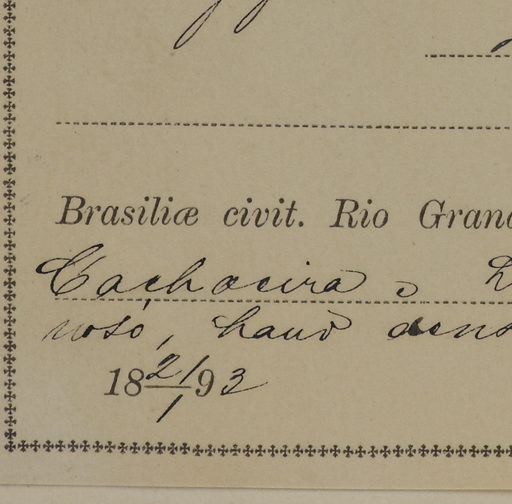 Brasiliæ civit. Rio Grand
Cachoeira
noso, haud dens
18 2/1 93